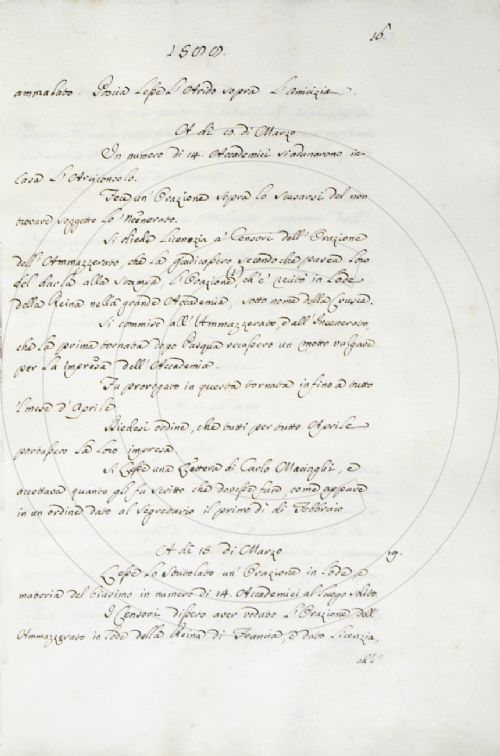 16.
1588.
ammalato. Poscia Lesse l'Arido sopra l'Amicizia.
A dì 10. di Marzo
In numero di 14. Accademici si adunarono in
Casa l'Arciconsolo.
Fece un'Orazione sopra lo scusarsi del non
trovare soggetto lo 'Ncenerato.
Si diede Licenzia a' Censori dell'Orazione
dell'Ammazzerato, che la giudicassero secondo che parea loro
del darla alla Stampa, l'Orazione ch'e' recitò in Lode
della Reina nella grande Accademia, sotto nome della Crusca.
Si commise all'Ammazzerato, e all'Incenerato,
che la prima tornata dopo Pasqua recassero un motto volgare
per la impresa dell'Accademia.
Fu prorogato in questa tornata infino a tutto
'l mese d'Aprile.
Diedesi ordine, che tutti per tutto Aprile
portassero la loro impresa.
Si Lesse una Lettera di Carlo Macinghi, e
accettava quanto gli fu scritto che dovesse fare, come appare
in un ordine dato al segretario il primo dì di Febbraio.
A dì 18. di Marzo
19.
Lesse Lo Stritolato un'Orazione in Lode, e
materia del biasimo in numero di 14. Accademici al luogo solito.
I Censori dissero aver veduto l'Orazione dell'
Ammazzerato in lode della Reina di Francia, e dato Licenzia,
ch'e'